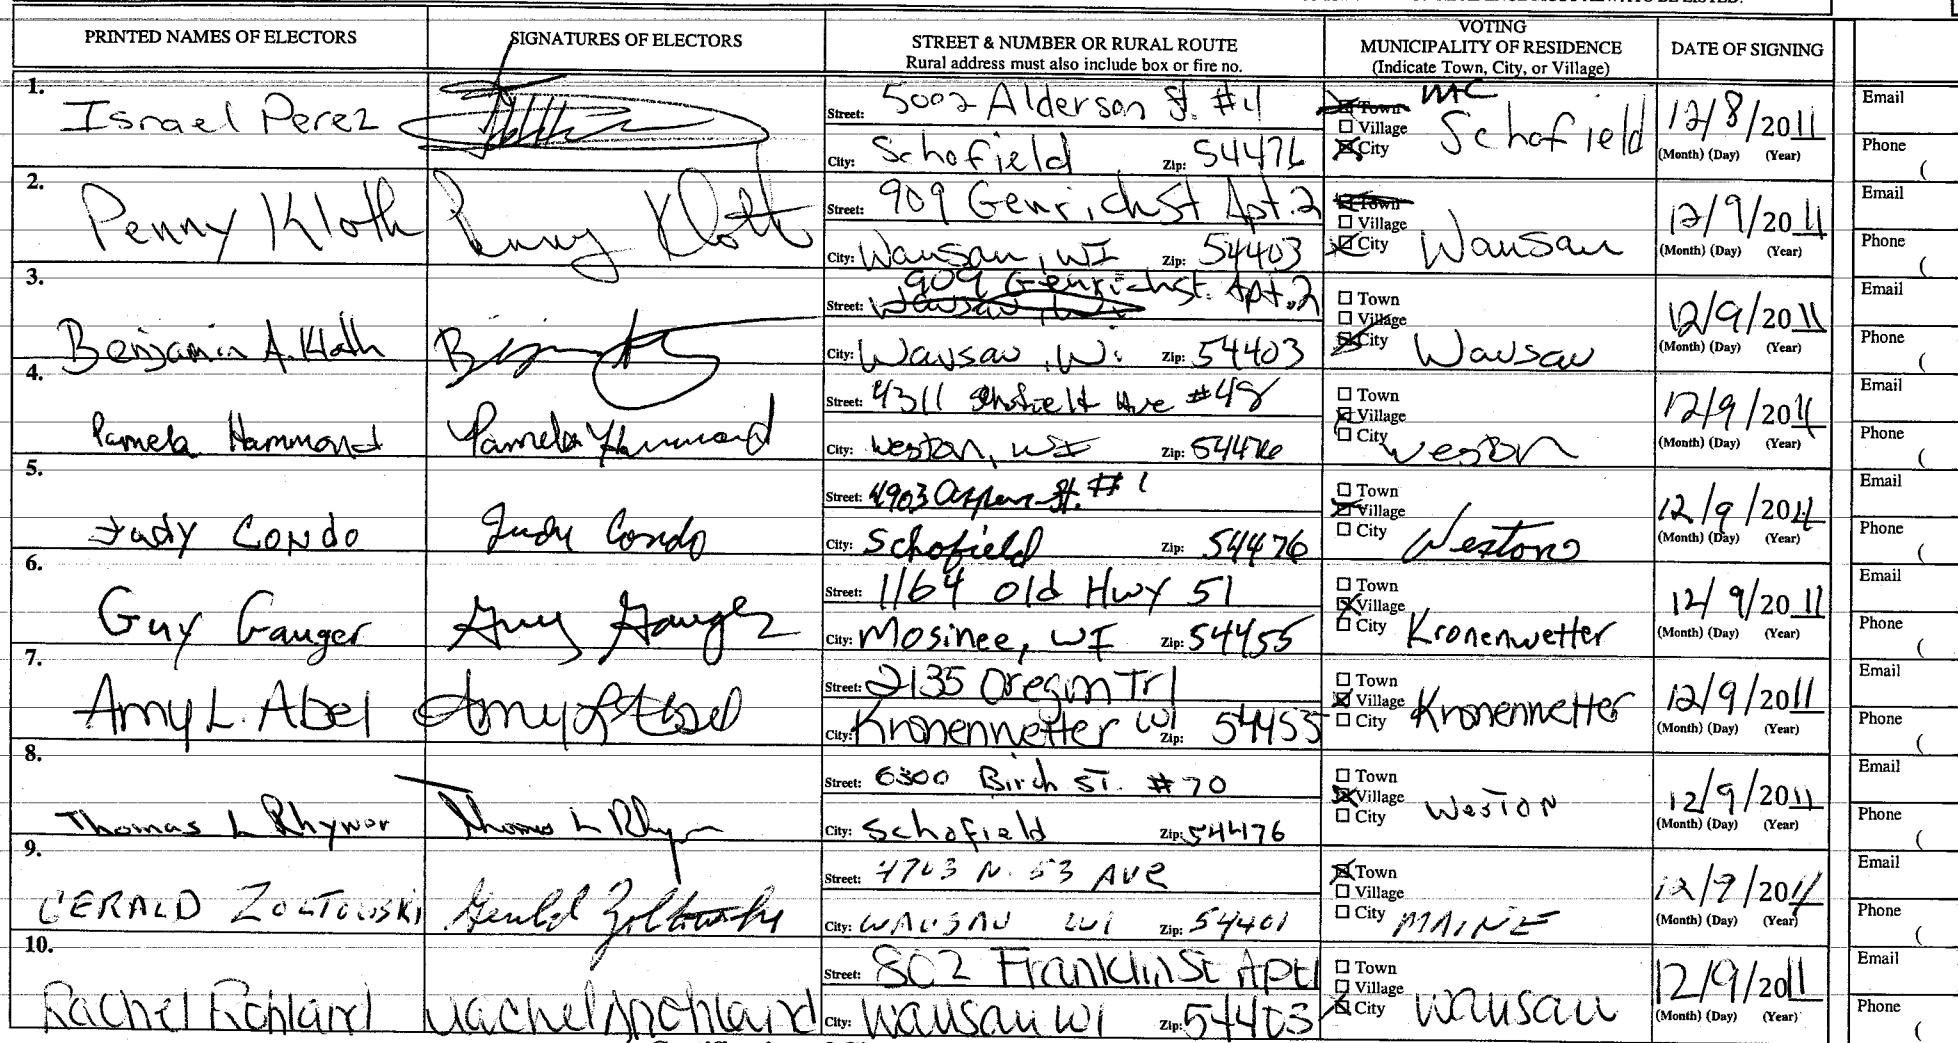 PRINTED NAMES OF ELECTORS
SIGNATURES OF ELECTORS
STREET & NUMBER OR RURAL ROUTE
Rural address must also include box or fire no.
VOTING
MUNICIPALITY OF RESIDENCE
(Indicate Town, City, or Village)
DATE OF SIGNING
1.
Israel Perez
Street: 5002 Alderson St. #4
City: Schofield Zip: 54476
Town
Village
City
MC
Schofield
12/8/2011
(Month) (Day) (Year)
Email
Phone (
2.
Penny Kloth
Penny Kloth
Street: 909 Genrich St Apt. 2
City: Wausau, WI Zip: 54403
Town
Village
City
Wausau
12/9/2011
(Month) (Day) (Year)
Email
Phone (
3.
Benjamin A. Kloth
Street: 909 Genrich St. Apt. 2
Wausau, Wi.
City: Wausau, Wi. Zip: 54403
Town
Village
City
Wausau
12/9/2011
(Month) (Day) (Year)
Email
Phone (
4.
Pamela Hammond
Pamela Hammond
Street: 4311 Schofield Ave #48
City: Weston, WI Zip: 54476
Town
Village
City
Weston
12/9/2011
(Month) (Day) (Year)
Email
Phone (
5.
Judy Condo
Judy Condo
Street: 4903 Aspen St. #1
City: Schofield Zip: 54476
Town
Village
City
Weston
12/9/2011
(Month) (Day) (Year)
Email
Phone (
6.
Guy Gauger
Guy Gauger
Street: 1164 Old Hwy 51
City: Mosinee, WI Zip: 54455
Town
Village
City
Kronenwetter
12/9/2011
(Month) (Day) (Year)
Email
Phone (
7.
Amy L. Abel
Amy L Abel
Street: 2135 Oregon Trl
City: Kronenwetter WI Zip: 54455
Town
Village
City
Kronenwetter
12/9/2011
(Month) (Day) (Year)
Email
Phone (
8.
Thomas L Rhyner
Thomas L Rhyn
Street: 6300 Birch ST. #70
City: Schofield Zip: 54476
Town
Village
City
WESTON
12/9/2011
(Month) (Day) (Year)
Email
Phone (
9.
GERALD ZOLTOWSKI
Gerald Zoltowski
Street: 4703 N. 53 AVE
City: WAUSAU WI Zip: 54401
Town
Village
City
MAINE
12/9/2011
(Month) (Day) (Year)
Email
Phone (
10.
Rachel Rohland
Rachel Rohland
Street: 802 Franklin St Apt1
City: Wausau WI Zip: 54403
Town
Village
City
Wausau
12/9/2011
(Month) (Day) (Year)
Email
Phone (